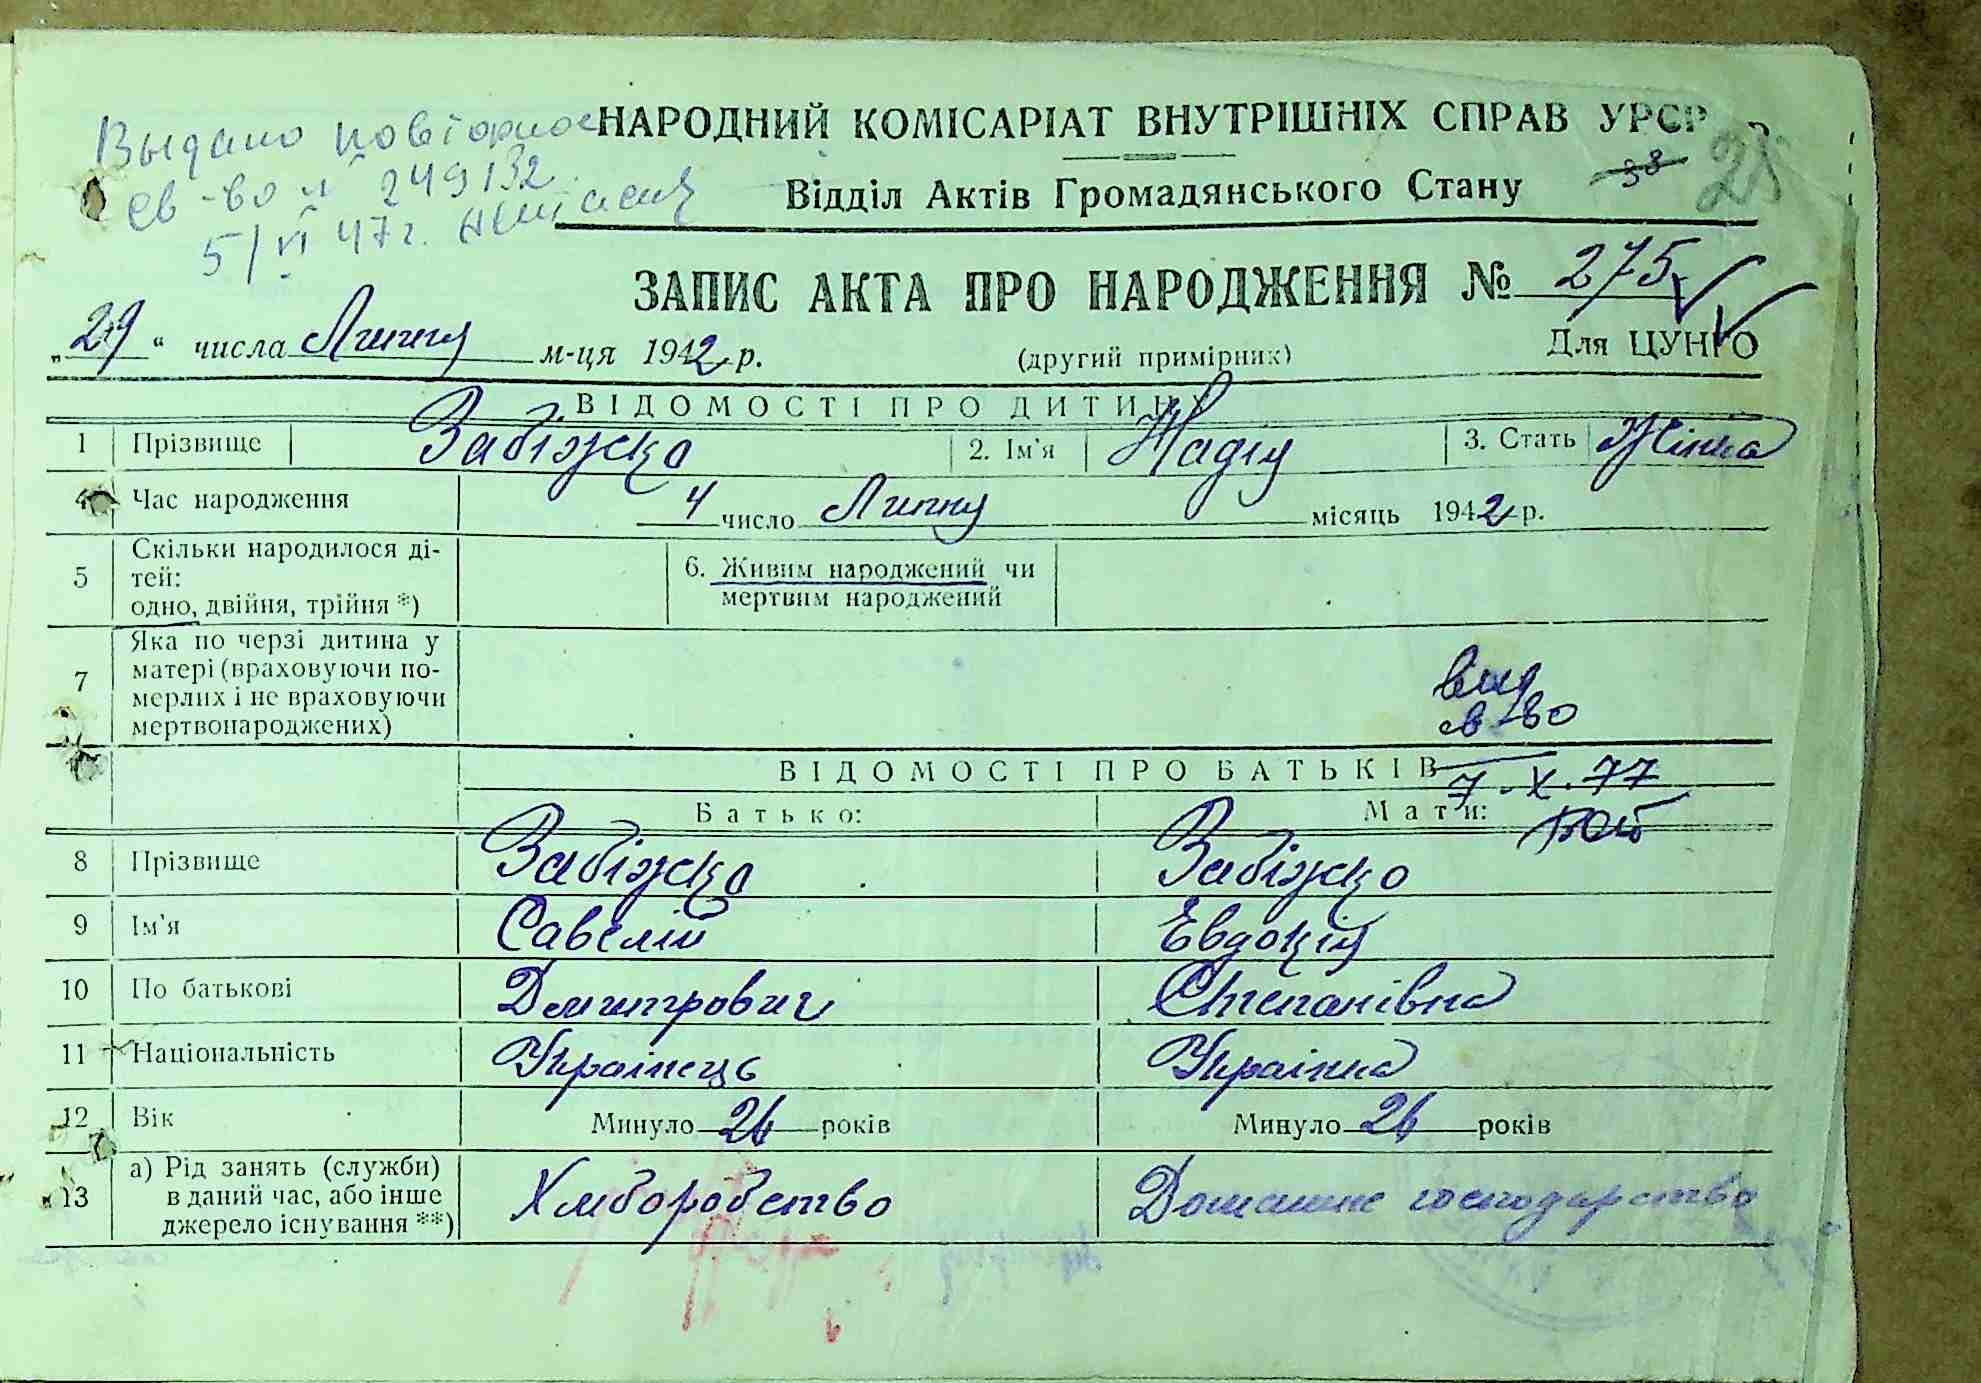 Выдано повторное
св-во № 249132
5/VI 47 г.
НАРОДНИЙ КОМІСАРІАТ ВНУТРІШНІХ СПРАВ УРСР
38 28
Відділ Актів Громадянського Стану
ЗАПИС АКТА ПРО НАРОДЖЕННЯ № 275
„29“ числа Липня м-ця 1942 р. (другий примірник) Для ЦУНГО
ВІДОМОСТІ ПРО ДИТИНУ
1 Прізвище Забіжко 2. Ім'я Надія 3. Стать Жінка
4 Час народження 4 число Липня місяць 1942 р.
5 Скільки народилося ді-
тей:
одно, двійня, трійня *)
6. Живим народжений чи
мертвим народжений
7 Яка по черзі дитина у
матері (враховуючи по-
мерлих і не враховуючи
мертвонароджених)
вид
св-во
7.X.77
ВІДОМОСТІ ПРО БАТЬКІВ
Батько: Мати:
8 Прізвище Забіжко Забіжко
9 Ім'я Савелій Евдокія
10 По батькові Дмитрович Степанівна
11 Національність Українець Українка
12 Вік Минуло 26 років Минуло 26 років
13 а) Рід занять (служби)
в даний час, або інше
джерело існування **)
Хліборобство Домашне господарство